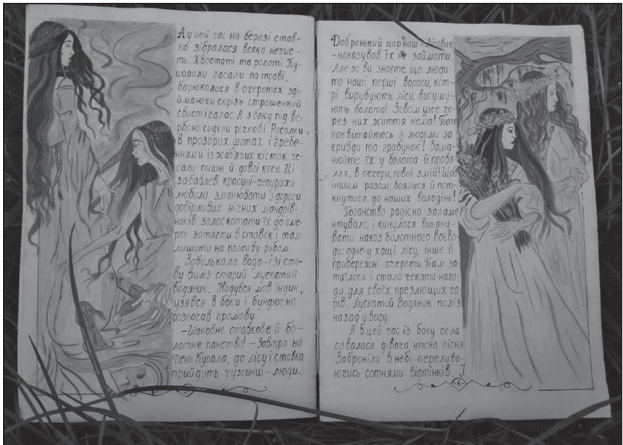 А у цей час на березі став-
ка зібралася всяка нечис-
ть. Хвостаті та рогаті Ку-
цодоли гасали по траві,
борюкалися в очеретах, зді-
ймаючи скрізь страшенний
свист і галас. А з боку під ве-
рбою сиділи річкові Русалки,
в прозорих шатах і гребе-
нями із жаб'ячих кісток че-
сали пишні й довгі коси. Ці
забаблеві красуні-чепурихи
любили зманювати з дороги
довірливих нічних мандрів-
ників, залоскотати їх до сме-
рті, затягти в ставок і там
лишити на поживу рибам.
Завилькала вода – і зі ста-
ви виліз старий лускатий
водяник. Надувся мов індик,
узявся в боки і бундючно
розпочав промову:
– Шановне ставкове й бо-
лотне панство! – Завтра на
день Купала, до лісу і ставка
прийдуть чужинці – люди.
Добренький цар наш – Лісовик
– наказував їх не займати.
Але ж ви знаєте, що люди
то наші перші вороги, кот-
рі вирубують ліси, висушу-
ють болота! Зовсім уже че-
рез них життя нема! Тож
поквитайтесь з людьми за
кривди та грабунок! Зама-
нюйте їх у болота й прова-
лля, в печери, повні змій! Щоб
іншим разом боялися й пот-
кнутися до наших володінь!
Поганство радісно залеме-
нтувало, і кинулося викону-
вати наказ болотного воєво-
ди: одне – у хащі лісу, інше в
прибережні очерети. Там за-
таїлося і стало чекати наго-
ди для своїх презлющих че-
рів. Лускатий Водяник поліз
назад у воду.
А в цей час із боку села
озвалася дівоча, ніжна пісня.
Забреніла в небі – перелива-
ючись сотнями відтінків. І